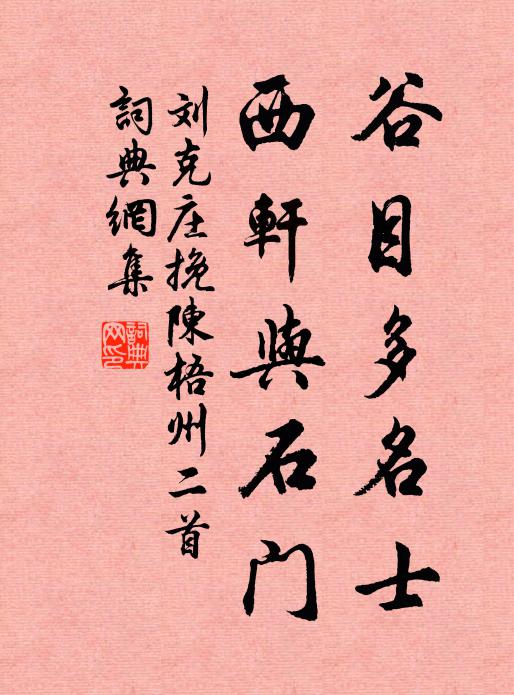 谷目多名士
西軒與石门
刘克庄挽陳梧州二首
詞典網集
詞典网印